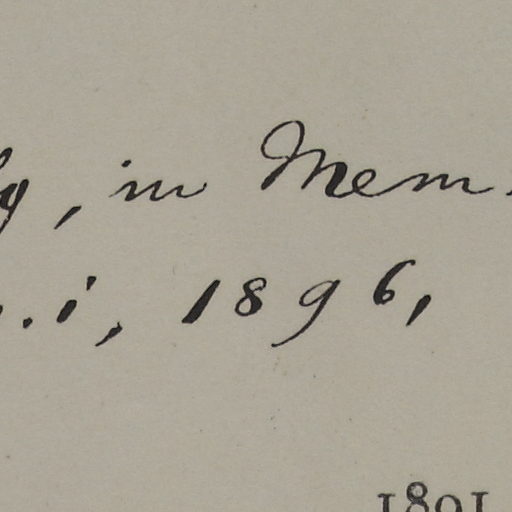 y, in Mem.
. i, 1896,
1891